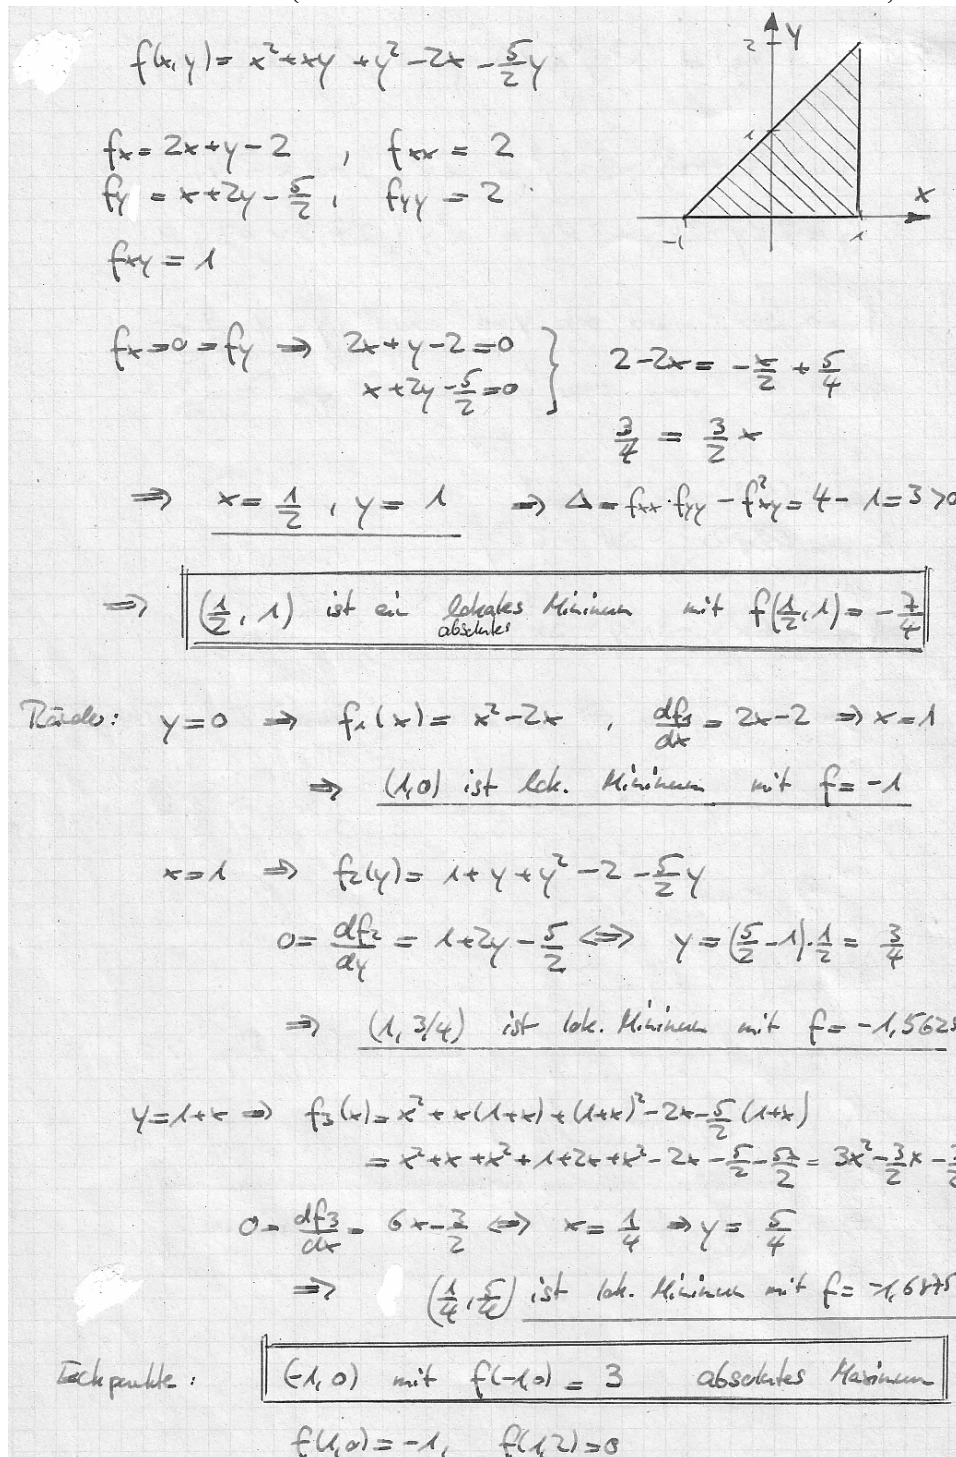 f(x,y) = x² + xy + y² - 2x - 5/2 y
2 y
1
x
-1 1
fx = 2x + y - 2 , fxx = 2
fy = x + 2y - 5/2 , fyy = 2
fxy = 1
fx = 0 = fy ⇒ 2x + y - 2 = 0 } 2 - 2x = -x/2 + 5/4
x + 2y - 5/2 = 0
3/4 = 3/2 x
⇒ x = 1/2 , y = 1 ⇒ Δ = fxx · fyy - f²xy = 4 - 1 = 3 > 0
⇒ (1/2, 1) ist ein lokales Minimum mit f(1/2, 1) = -7/4
absolutes
Ränder: y = 0 ⇒ f₁(x) = x² - 2x , df₁/dx = 2x - 2 ⇒ x = 1
⇒ (1,0) ist lok. Minimum mit f = -1
x = 1 ⇒ f₂(y) = 1 + y + y² - 2 - 5/2 y
0 = df₂/dy = 1 + 2y - 5/2 ⇔ y = (5/2 - 1) · 1/2 = 3/4
⇒ (1, 3/4) ist lok. Minimum mit f = -1,5625
y = 1 + x ⇒ f₃(x) = x² + x(1+x) + (1+x)² - 2x - 5/2 (1+x)
= x² + x + x² + 1 + 2x + x² - 2x - 5/2 - 5x/2 = 3x² - 3/2 x - 3/2
0 = df₃/dx = 6x - 3/2 ⇔ x = 1/4 ⇒ y = 5/4
⇒ (1/4, 5/4) ist lok. Minimum mit f = -1,6875
Eckpunkte: (-1,0) mit f(-1,0) = 3 absolutes Maximum
f(1,0) = -1, f(1,2) = 0